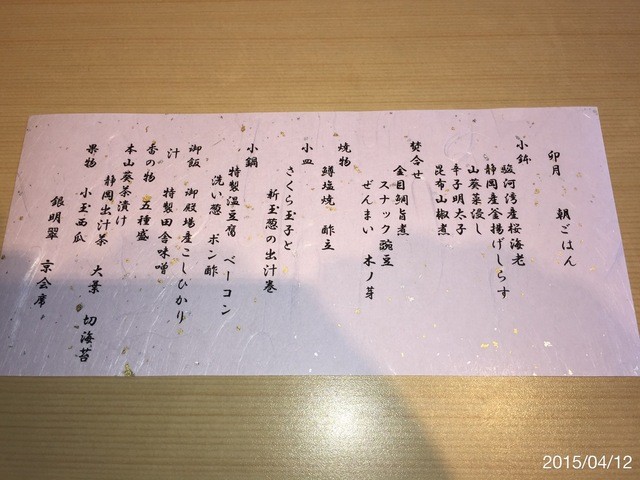 卯月　朝ごはん
小鉢
駿河湾産桜海老
静岡産釜揚げしらす
山葵菜浸し
辛子明太子
昆布山椒煮
焚合せ
金目鯛旨煮
スナック豌豆
ぜんまい　木ノ芽
焼物
鱒塩焼　酢立
小皿
さくら玉子と
新玉葱の出汁巻
小鍋
特製温豆腐　ベーコン
洗い葱　ポン酢
御飯　御殿場産こしひかり
汁　特製田舎味噌
香の物　五種盛
本山葵茶漬け
静岡出汁茶　大葉　切海苔
果物　小玉西瓜
銀明翠　京会席
2015/04/12